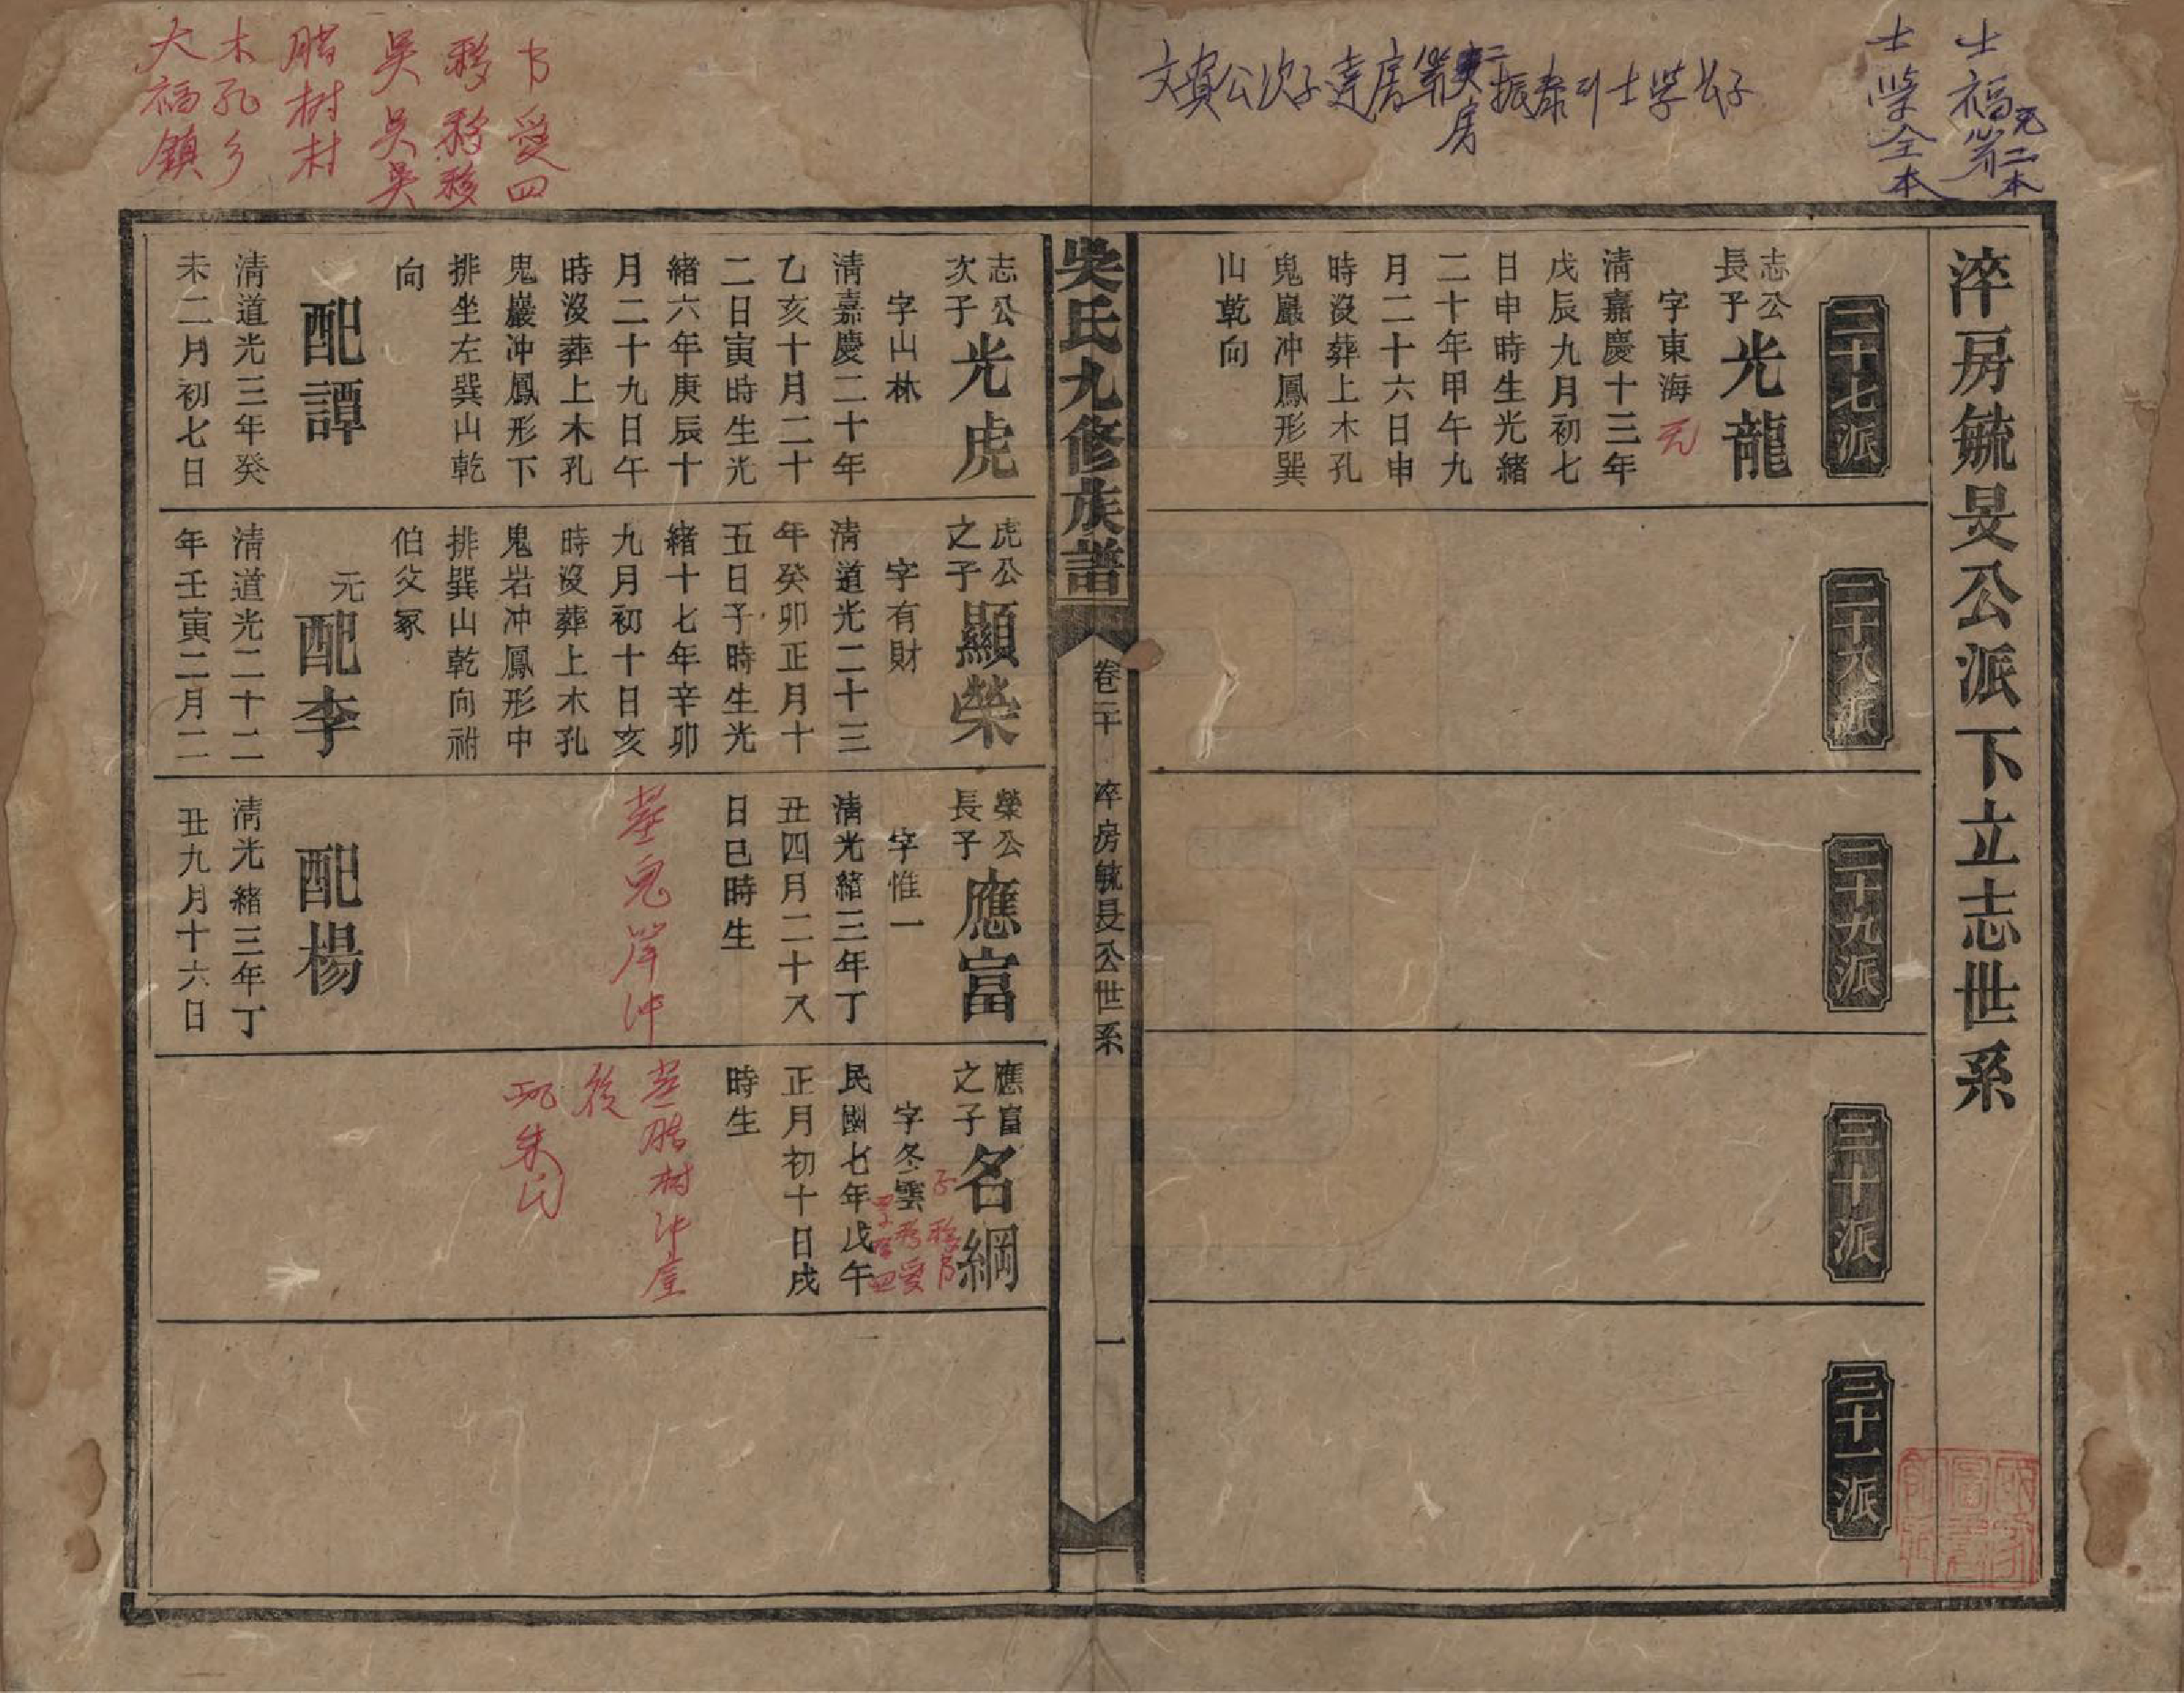 士福
士學全本
淬房毓旻公派下立志世系
二十七派
二十八派
二十九派
三十派
三十一派
志公
長子
光龍
字東海
元
清嘉慶十三年
戊辰九月初七
日申時生光緒
二十年甲午九
月二十六日申
時沒葬上木孔
鬼巖冲鳳形巽
山乾向
吳氏九修族譜
卷二十
淬房毓旻公世系
一
志公
次子
光虎
字山林
清嘉慶二十年
乙亥十月二十
二日寅時生光
緒六年庚辰十
月二十九日午
時沒葬上木孔
鬼巖冲鳳形下
排坐左巽山乾
向
配譚
清道光三年癸
未二月初七日
虎公
之子
顯榮
字有財
清道光二十三
年癸卯正月十
五日子時生光
緒十七年辛卯
九月初十日亥
時沒葬上木孔
鬼岩冲鳳形中
排巽山乾向祔
伯父冢
元
配李
清道光二十二
年壬寅二月二
榮公
長子
應富
字惟一
清光緒三年丁
丑四月二十八
日巳時生
配楊
清光緒三年丁
丑九月十六日
應富
之子
名綱
字冬雲
民國七年戊午
正月初十日戌
時生
配朱氏
吳 吳 吳
腊树村
木孔乡
大福鎮